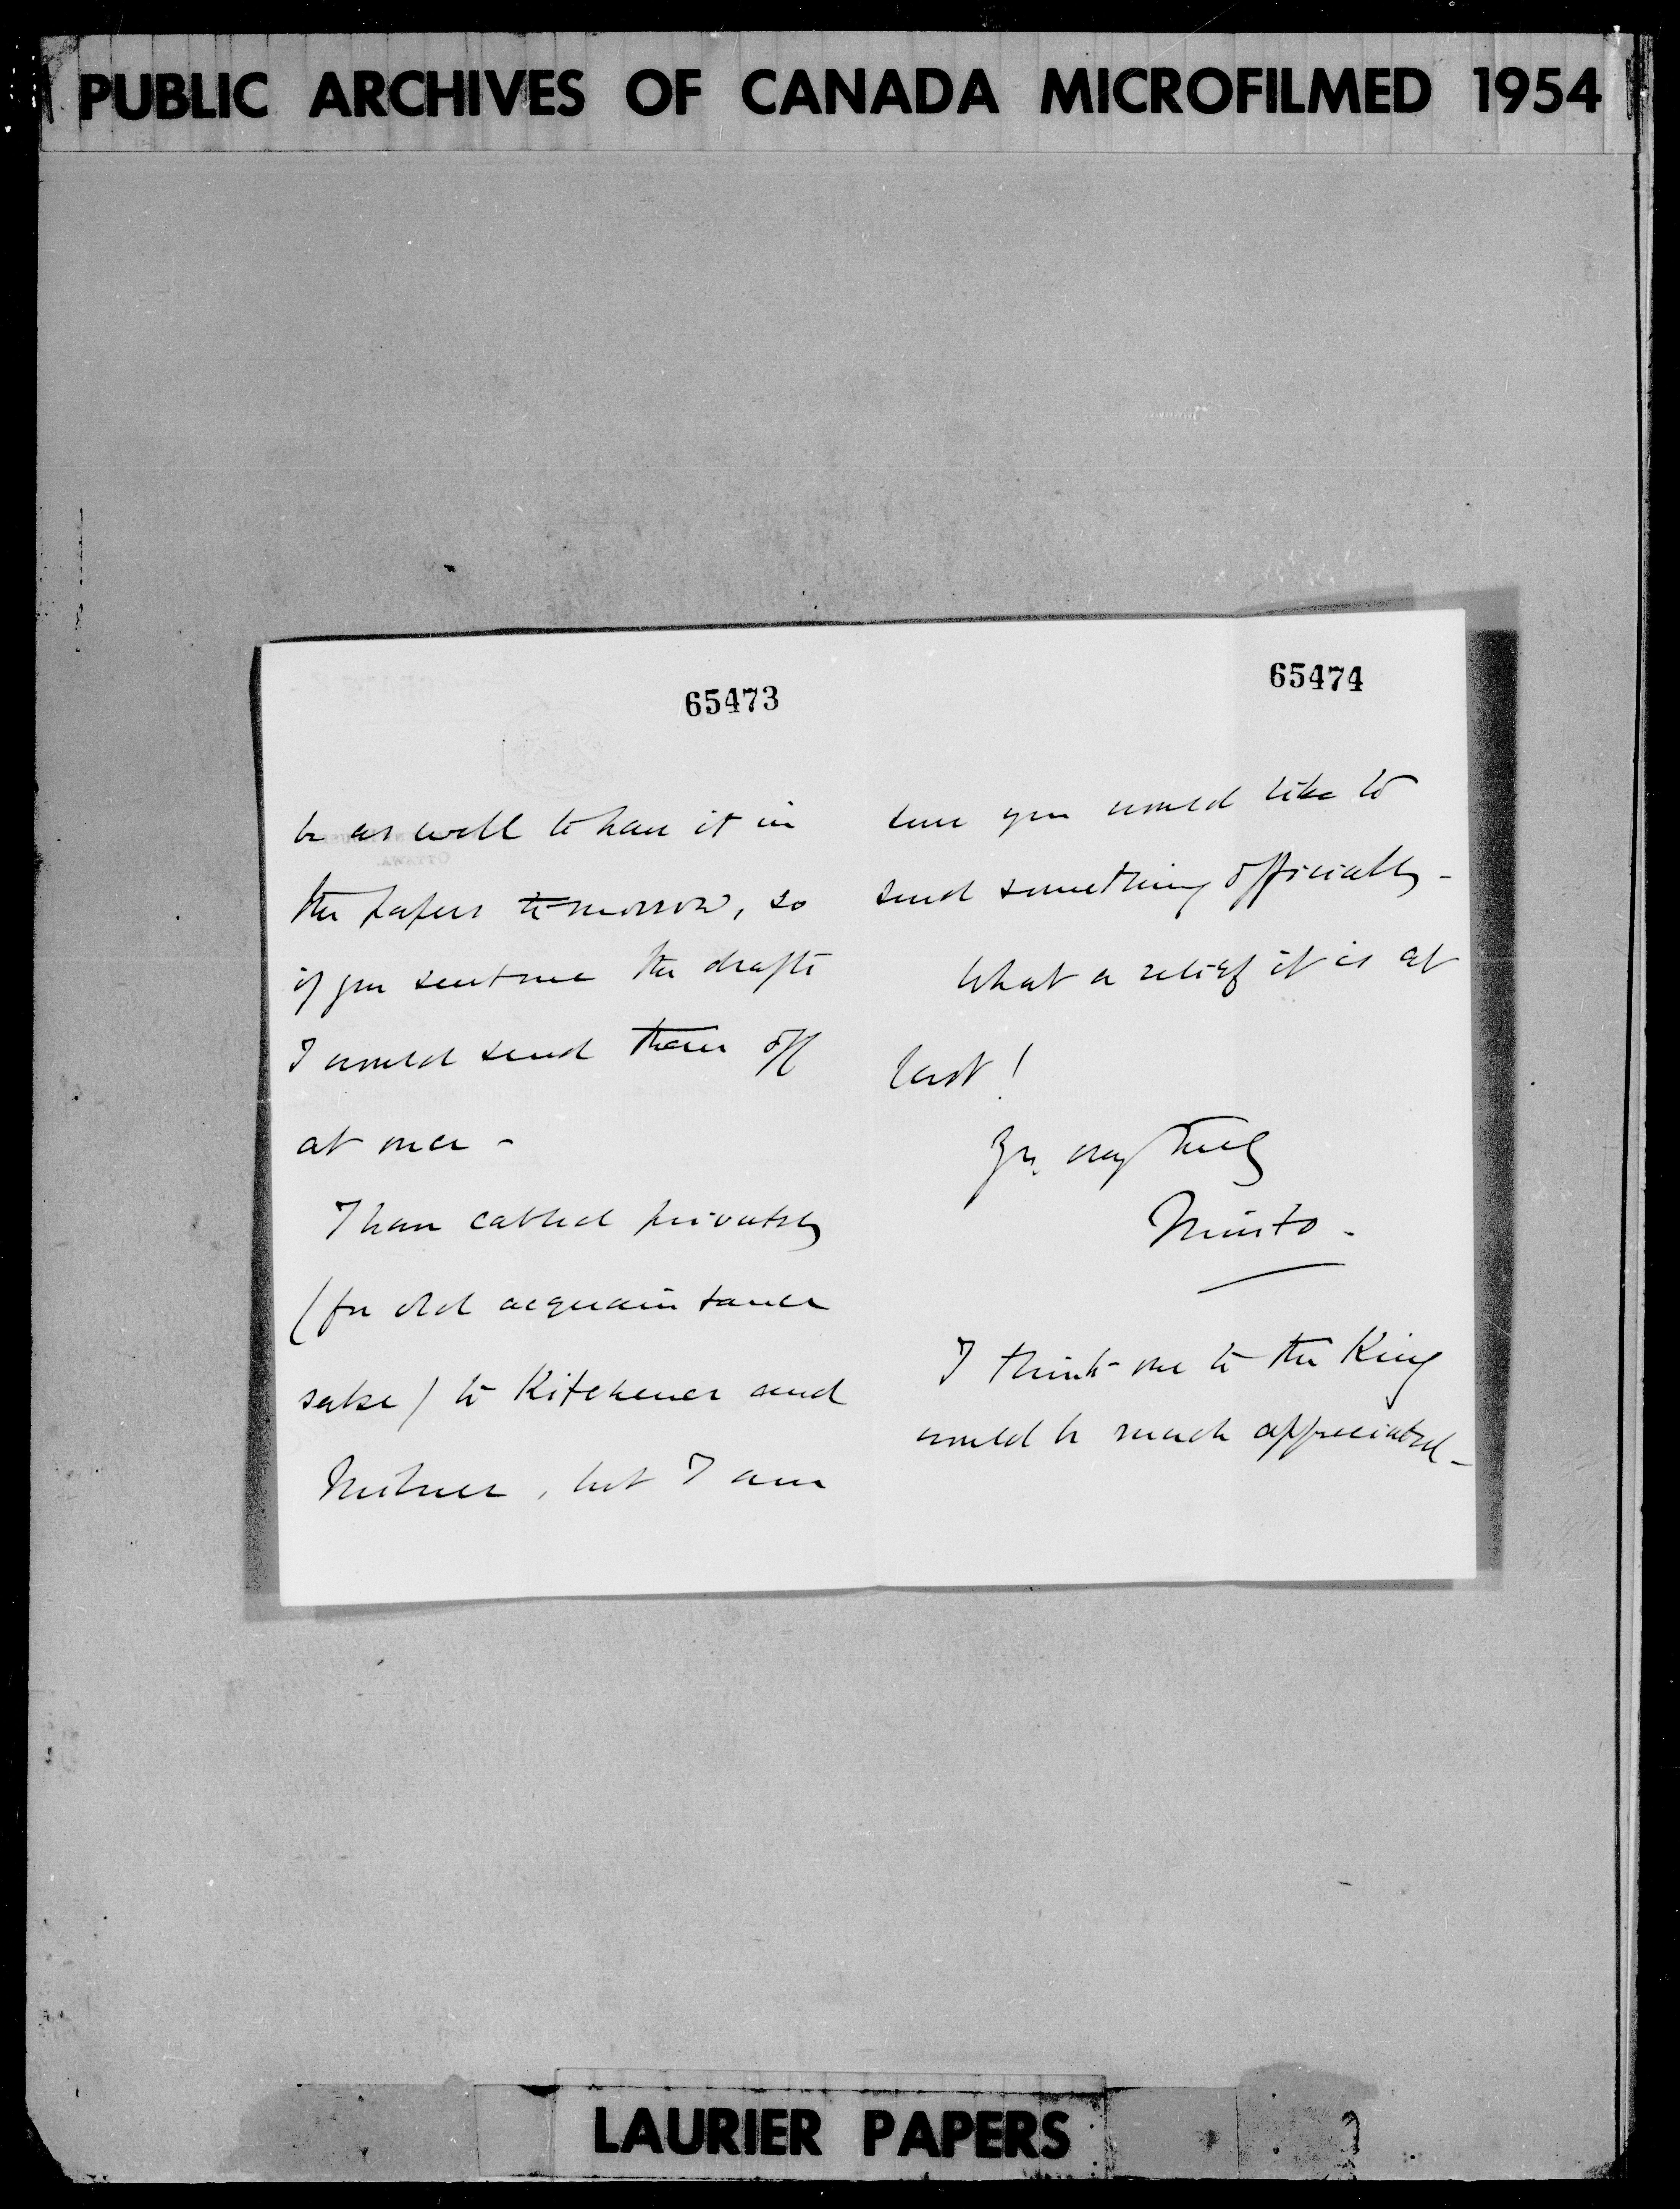 PUBLIC ARCHIVES OF CANADA MICROFILMED 1954
65473
be as well to have it in
the papers to-morrow, so
if you sent me the drafts
I would send them off
at once -
I have cabled privately
(for old acquaintance
sake) to Kitchener and
Milner, but I am
65474
sure you would like to
send something officially -
What a relief it is at
last!
Yrs. very truly
Minto -
I think one to the King
would be much appreciated -
LAURIER PAPERS